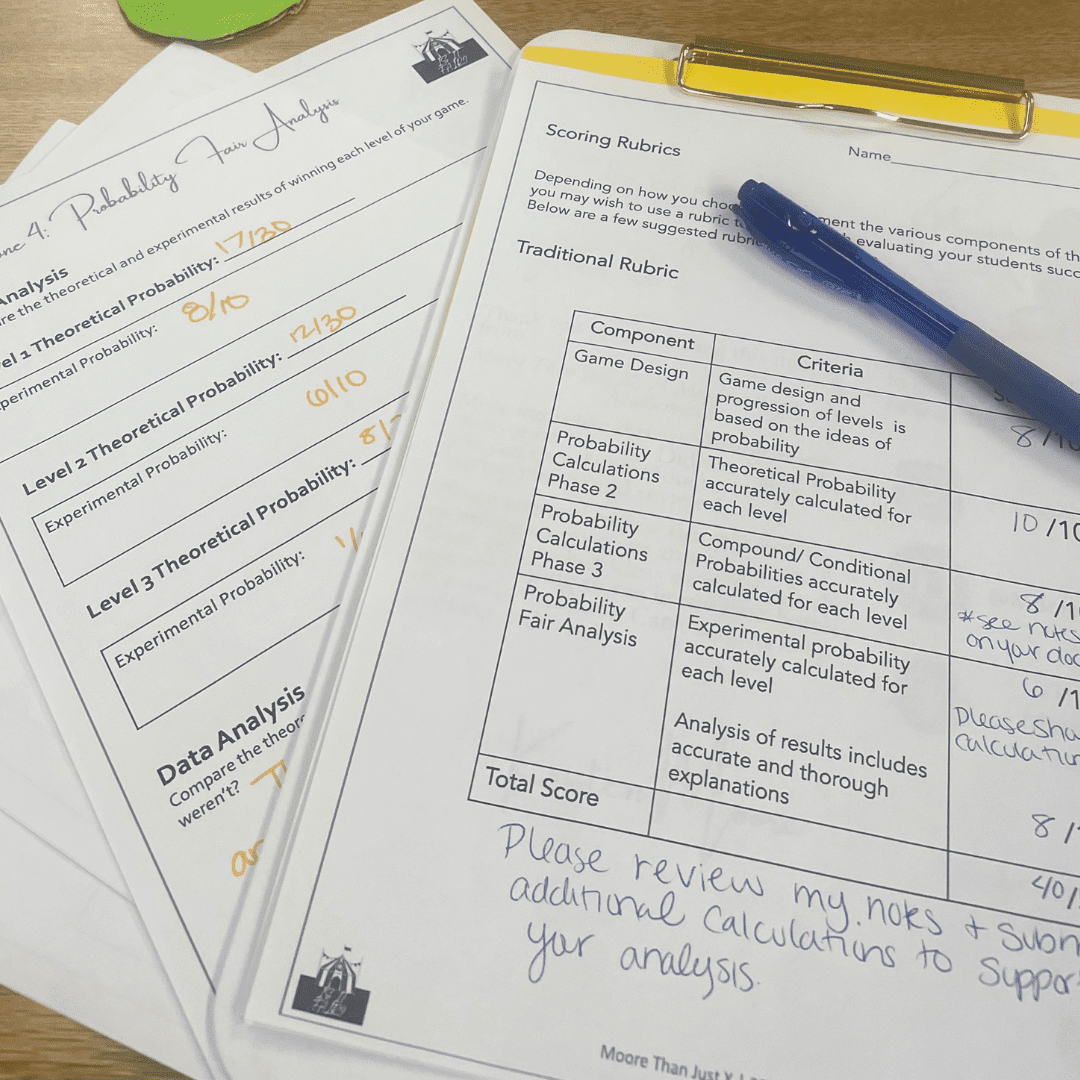 4: Probability Fair Analysis
Analysis
the theoretical and experimental results of winning each level of your game.
1 Theoretical Probability: 17/30
Experimental Probability: 8/10
Level 2 Theoretical Probability: 12/30
Experimental Probability: 6/10
Level 3 Theoretical Probability: 8/
Experimental Probability: 1/
Data Analysis
Compare the
weren't?
Scoring Rubrics
Name
Depending on how you the various components of
you may wish to use a rubric evaluating your students
Below are a few suggested
Traditional Rubric
Component
Criteria
Game Design
Game design and
progression of levels is
based on the ideas of
probability
8/10
Probability
Calculations
Phase 2
Theoretical Probability
accurately calculated for
each level
10/10
Probability
Calculations
Phase 3
Compound/ Conditional
Probabilities accurately
calculated for each level
8/10
*see notes
on your
Probability
Fair Analysis
Experimental probability
accurately calculated for
each level
6/1
Please
Analysis of results includes
accurate and thorough
explanations
8/
Total Score
40/
Please review my notes +
additional calculations to
your analysis.
Moore Than Just X